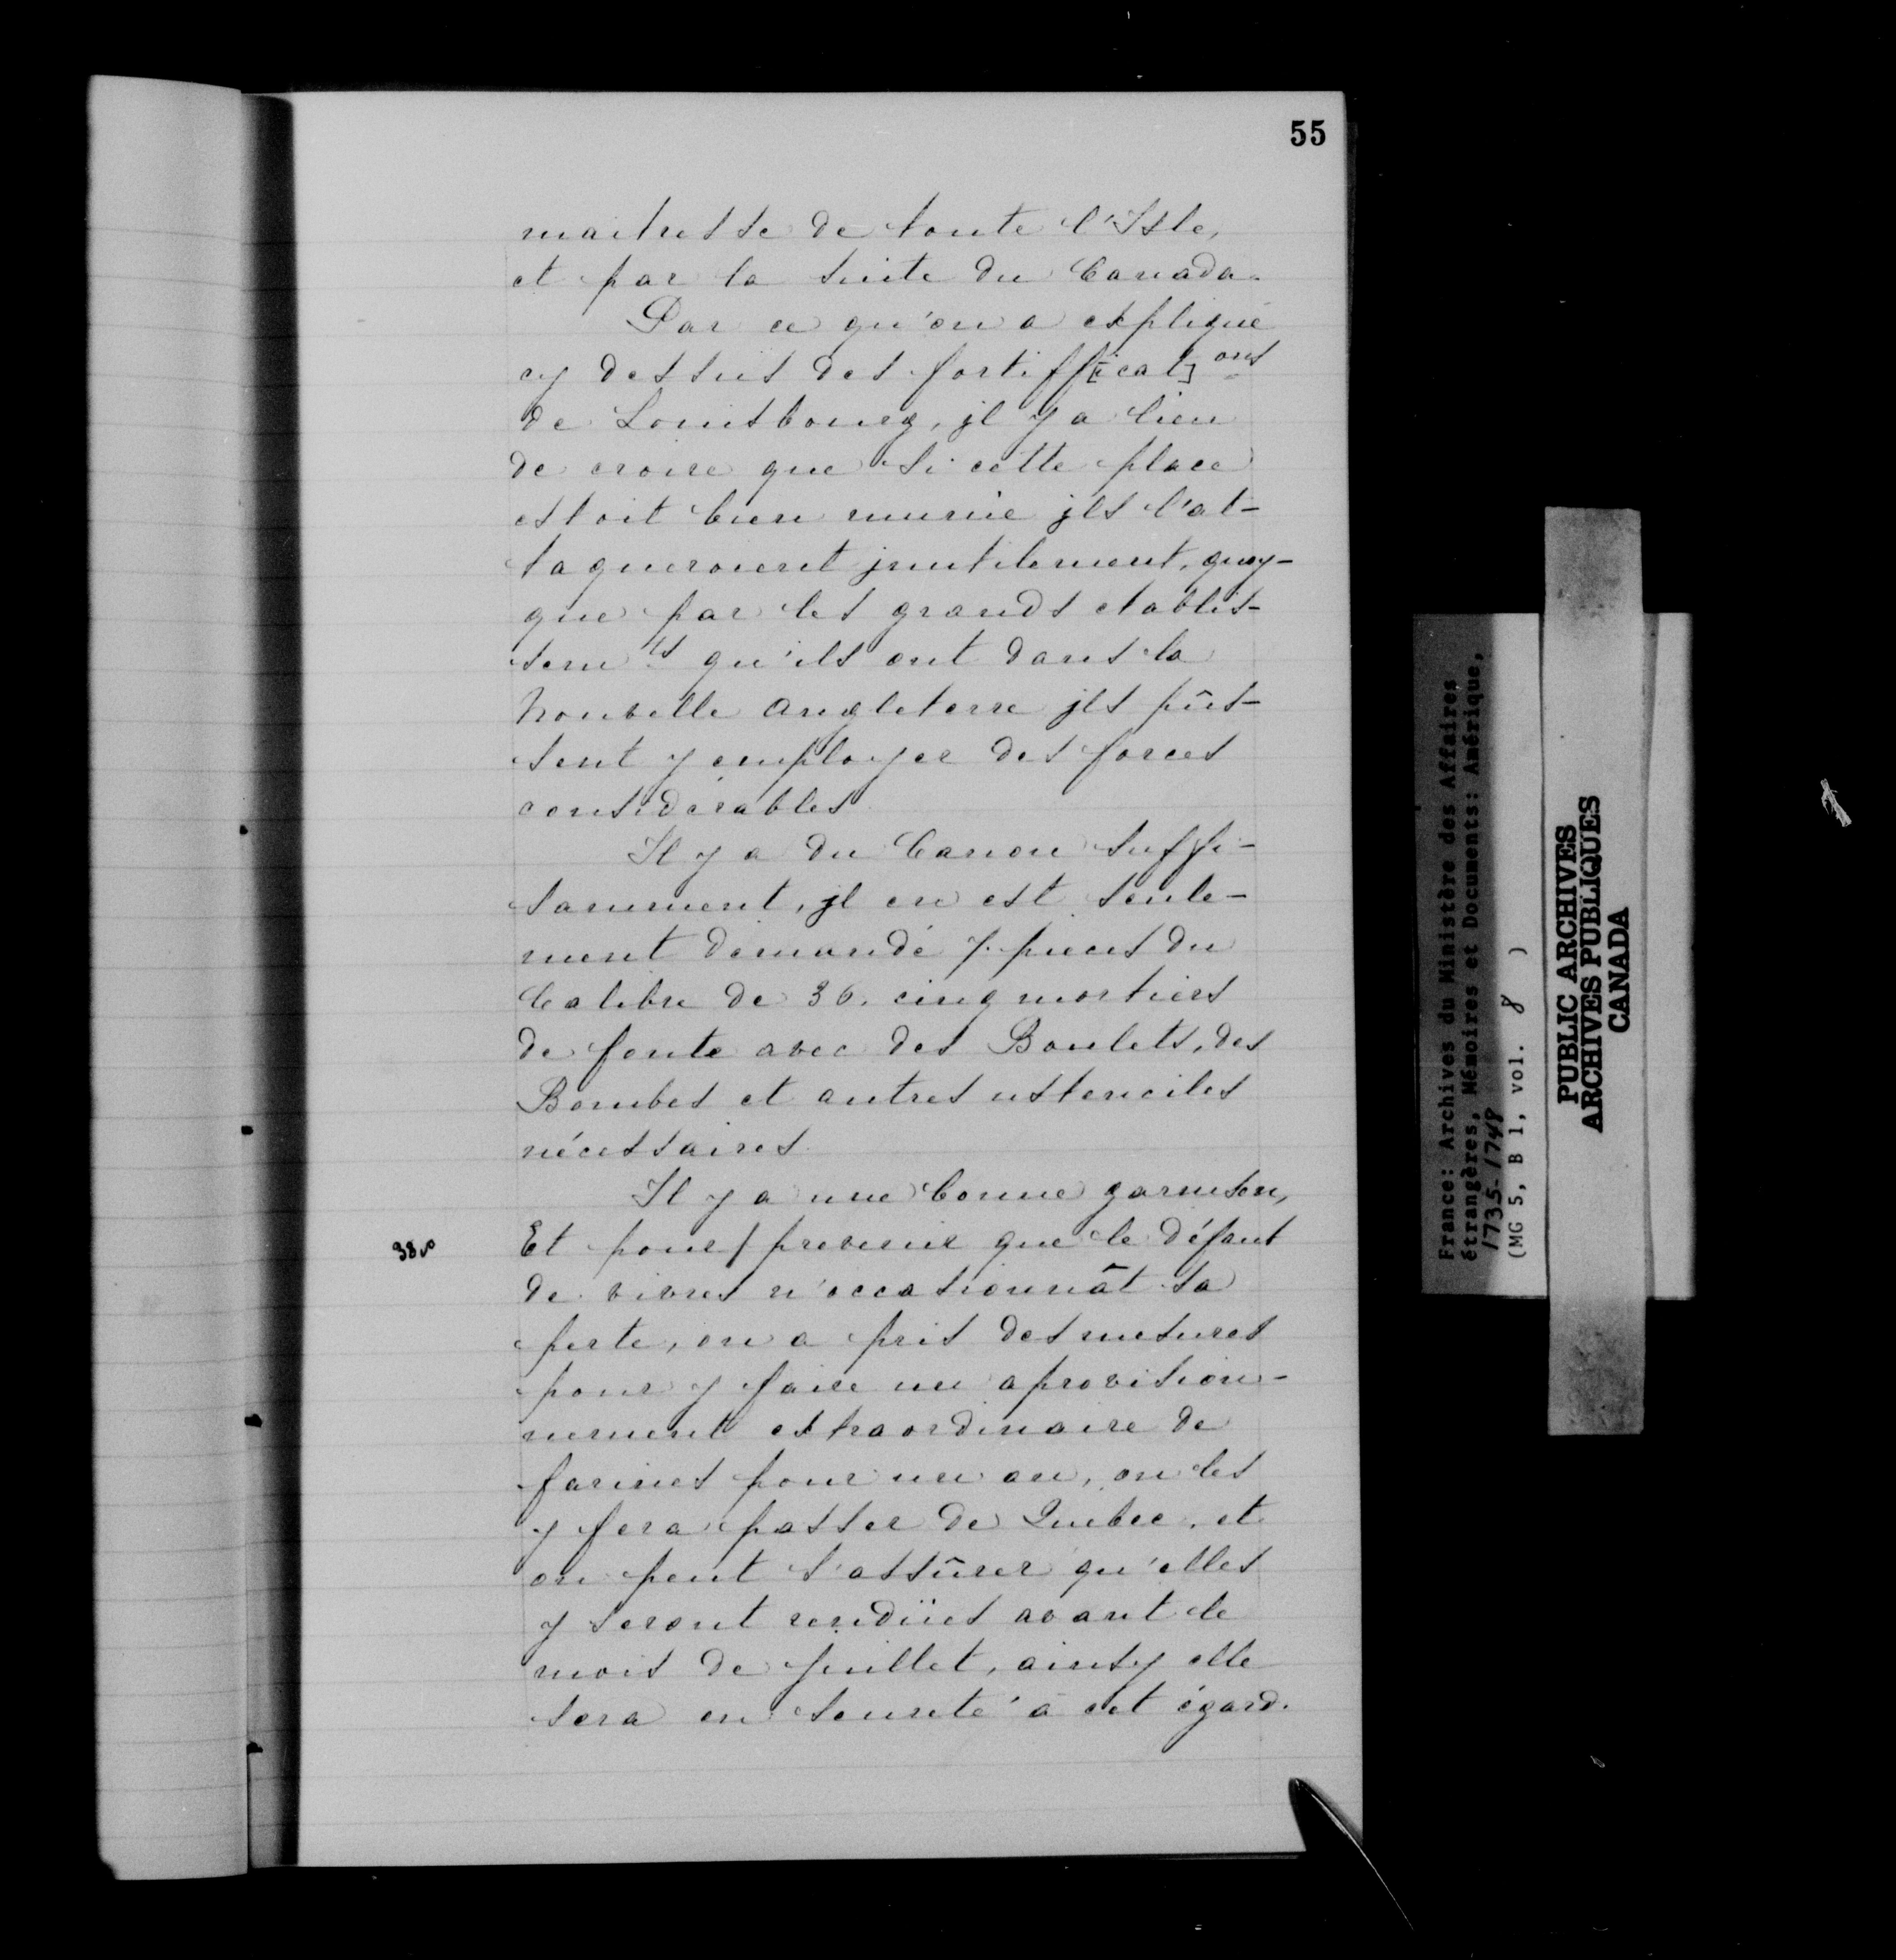 55
maitresse de toute l'Isle,
et par la suite du Canada.
Par ce qu'on a expliqué
cy dessus des fortiff[icat]ons
de Louisbourg, jl y a lieu
de croire que si cette place
estoit bien munie jls l'at-
taqueroient jnutilement, quoy-
que par les grands etablis-
semts qu'ils ont dans la
Nouvelle Angleterre jls pûs-
sent y employer des forces
considerables
Il y a du Canon suffi-
samment, jl en est seule-
ment demandé 7. pieces du
Calibre de 36. cinq mortiers
de fonte avec des Boulets, des
Bombes et autres ustenciles
nécessaires.
Il y a une bonne garnison,
38vo
Et pour / prevenir que le défaut
de vivres n'occasionnât sa
perte, on a pris des mesures
pour y faire un aprovision-
nement extraordinaire de
farines pour un an, on les
y fera passer de Quebec, et
on peut s'assûrer qu'elles
y seront rendües avant le
mois de Juillet, ainsy elle
sera en seureté à cet égard.
France: Archives du Ministère des Affaires
étrangères, Mémoires et Documents: Amérique,
1735-1748
(MG 5, B 1, vol. 8 )
PUBLIC ARCHIVES
ARCHIVES PUBLIQUES
CANADA